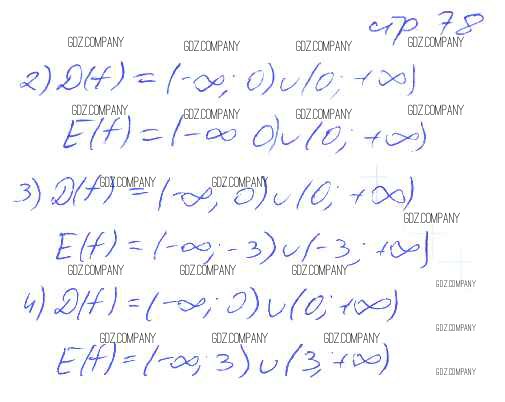 стр 78
GDZ.COMPANY GDZ.COMPANY GDZ.COMPANY GDZ.COMPANY
2) D(f) = (-∞; 0) ∪ (0; +∞)
GDZ.COMPANY GDZ.COMPANY GDZ.COMPANY GDZ.COMPANY
E(f) = (-∞ 0) ∪ (0; +∞)
GDZ.COMPANY GDZ.COMPANY
3) D(f) = (-∞; 0) ∪ (0; +∞)
GDZ.COMPANY
E(f) = (-∞; -3) ∪ (-3; +∞)
GDZ.COMPANY GDZ.COMPANY GDZ.COMPANY
GDZ.COMPANY
4) D(f) = (-∞; 0) ∪ (0; +∞)
GDZ.COMPANY
GDZ.COMPANY GDZ.COMPANY GDZ.COMPANY
E(f) = (-∞; 3) ∪ (3; +∞)
GDZ.COMPANY